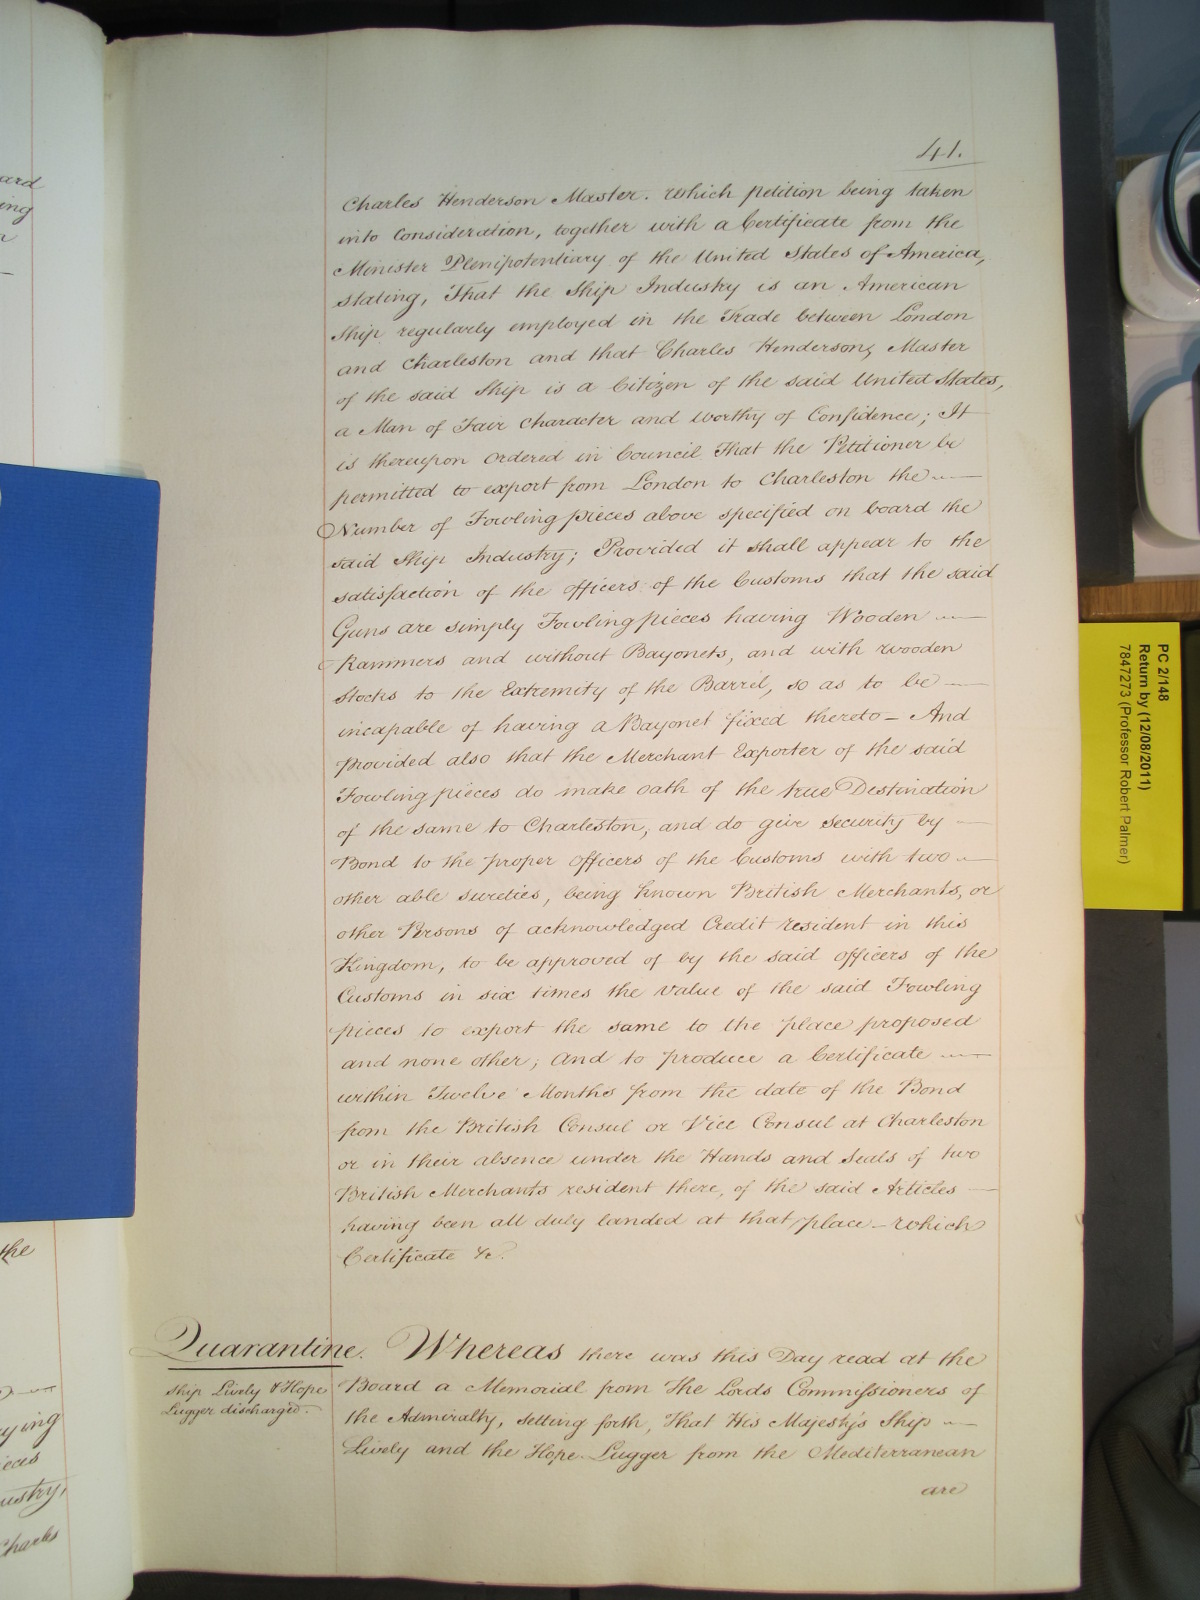 41.
Charles Henderson Master. Which petition being taken
into Consideration, together with a Certificate from the
Minister Plenipotentiary of the United States of America,
stating, That the Ship Industry is an American
Ship regularly employed in the Trade between London
and Charleston and that Charles Henderson, Master
of the said Ship is a Citizen of the said United States,
a Man of Fair Character and worthy of Confidence; It
is thereupon ordered in Council That the Petitioner be
permitted to export from London to Charleston the
Number of Fowling pieces above specified on board the
said Ship Industry; Provided it shall appear to the
satisfaction of the officers of the Customs that the said
Guns are simply Fowling pieces having Wooden
Rammers and without Bayonets, and with wooden
Stocks to the Extremity of the Barrel, so as to be
incapable of having a Bayonet fixed thereto - And
Provided also that the Merchant Exporter of the said
Fowling pieces do make oath of the true Destination
of the same to Charleston, and do give security by
Bond to the proper officers of the Customs with two
other able sureties, being known British Merchants, or
other Persons of acknowledged Credit resident in this
Kingdom, to be approved of by the said officers of the
Customs in six times the value of the said Fowling
pieces to export the same to the place proposed
and none other; And to produce a Certificate
within Twelve Months from the date of the Bond
from the British Consul or Vice Consul at Charleston
or in their absence under the Hands and Seals of two
British Merchants resident there, of the said Articles
having been all duly landed at that place - which
Certificate &c.
Quarantine. Whereas there was this Day read at the
Ship Lively & Hope
Lugger discharged.
Board a Memorial from The Lords Commissioners of
the Admiralty, setting forth, That His Majesty's Ship
Lively and the Hope Lugger from the Mediterranean
are
PC 2/148
Return by (12/08/2011)
7847273 (Professor Robert Palmer)
ard
ing
the
ying
eces
ustry,
Charles